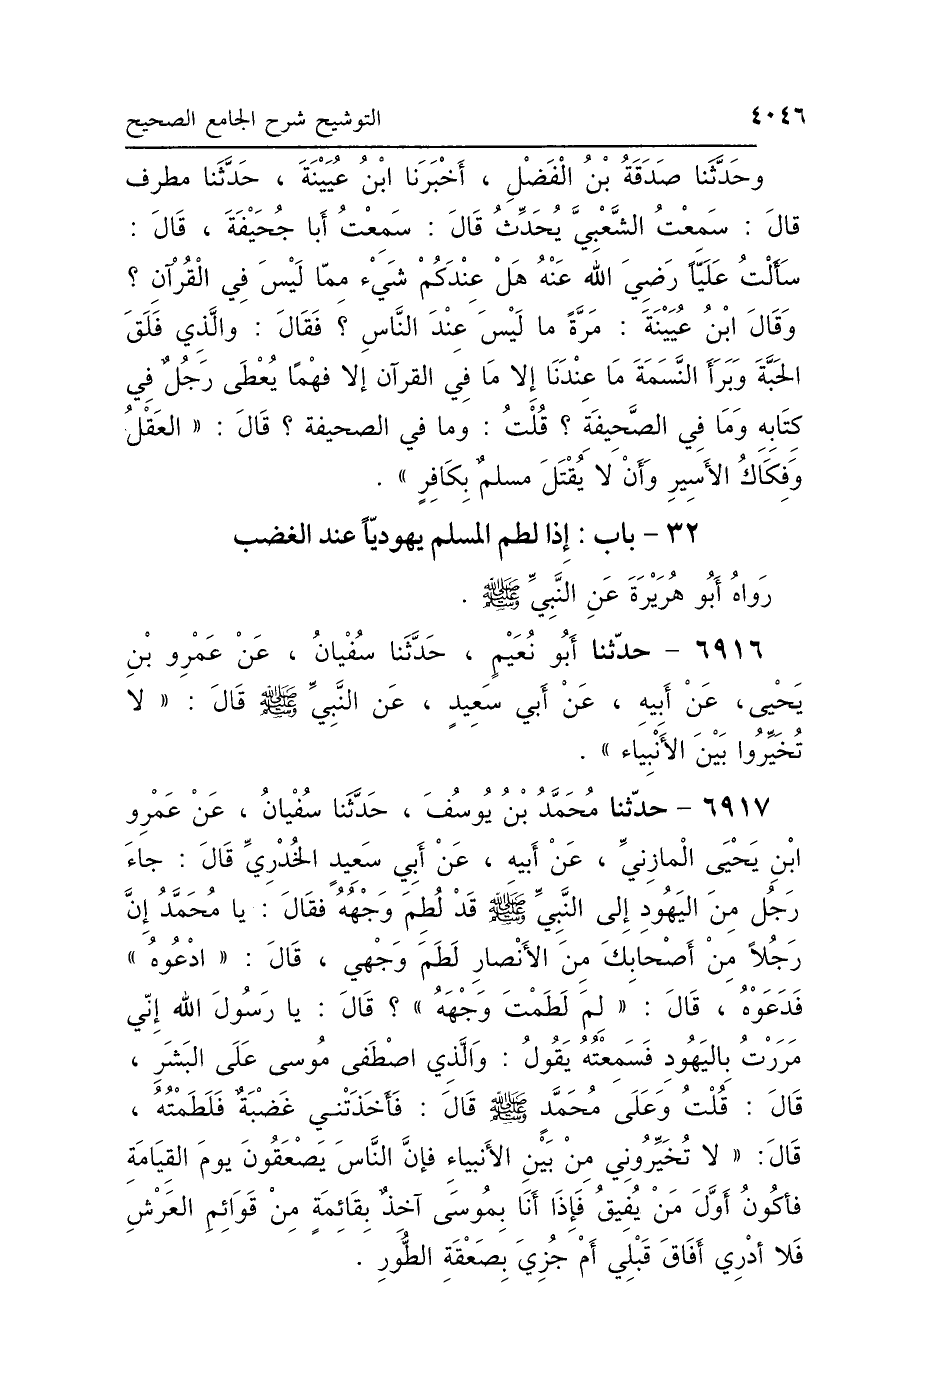 ٤٠٤٦ التوشيح شرح الجامع الصحيح
وحَدَّثَنا صَدَقَةُ بْنُ الْفَضْلِ ، أَخْبَرَنا ابْنُ عُيَيْنَةَ ، حَدَّثَنا مطرف
قالَ : سَمِعْتُ الشَّعْبِيَّ يُحَدِّثُ قَالَ : سَمِعْتُ أَبا جُحَيْفَةَ ، قَالَ :
سَأَلْتُ عَلَيّاً رَضِيَ الله عَنْهُ هَلْ عِنْدَكُمْ شَيْء مِمّا لَيْسَ فِي الْقُرْآن ؟
وَقَالَ ابْنُ عُيَيْنَةَ : مَرَّةً ما لَيْسَ عِنْدَ النَّاسِ ؟ فَقَالَ : والَّذِي فَلَقَ
الحَبَّةَ وَبَرَأَ النَّسَمَةَ مَا عِنْدَنَا إِلا مَا فِي القرآن إلا فهْمًا يُعْطَى رَجُلٌ فِي
كِتَابِهِ وَمَا فِي الصَّحِيفَةِ ؟ قُلْتُ : وما في الصحيفة ؟ قَالَ : « العَقْلُ
وَفِكَاكُ الأَسِيرِ وَأَنْ لا يُقْتَلَ مسلمٌ بِكَافِرٍ » .
٣٢ – باب : إذا لطم المسلم يهوديّاً عند الغضب
رَواهُ أَبُو هُرَيْرَةَ عَنِ النَّبِيِّ ﷺ .
٦٩١٦ – حدّثنا أَبُو نُعَيْمٍ ، حَدَّثَنا سفُيانُ ، عَنْ عَمْرِو بْنِ
يَحْيى، عَنْ أَبِيهِ ، عَنْ أَبي سَعِيدٍ ، عَن النَّبِيِّ ﷺ قَالَ : « لا
تُخَيِّرُوا بَيْنَ الأَنْبِياء » .
٦٩١٧ – حدّثنا مُحَمَّدُ بْنُ يُوسُفَ ، حَدَّثَنا سفُيانُ ، عَنْ عَمْرِو
ابْنِ يَحْيَى الْمازنيِّ ، عَنْ أَبيهِ ، عَنْ أَبي سَعِيدٍ الخُدْرِيِّ قَالَ : جاءَ
رَجُل مِنَ اليَهُودِ إِلى النَّبيِّ ﷺ قَدْ لُطِمَ وَجْهُهُ فقَالَ : يا مُحَمَّدُ إِنَّ
رَجُلاً مِنْ أَصْحابِكَ مِنَ الأَنْصارِ لَطَمَ وَجْهي ، قَالَ : « ادْعُوهُ »
فَدَعَوْهُ ، قَالَ : « لِمَ لَطَمْتَ وَجْهَهُ » ؟ قَالَ : يا رَسُولَ الله إِنّي
مَرَرْتُ بِاليَهُودِ فَسَمِعْتُهُ يَقُولُ : وَالَّذِي اصْطَفى مُوسى عَلَى البَشَرِ ،
قَالَ : قُلْتُ وَعَلَى مُحَمَّدٍ ﷺ قَالَ : فَأَخَذَتْنِي غَضْبَةٌ فَلَطَمْتُهُ ،
قَالَ: « لا تُخَيِّرُوني مِنْ بَيْنِ الأَنبِياء فإِنَّ النَّاسَ يَصْعَقُونَ يومَ القِيَامَةِ
فأكُونُ أَوَّلَ مَنْ يُفِيقُ فَإِذَا أَنَا بِمُوسَى آخِذٌ بِقَائِمَةٍ مِنْ قَوَائِمِ العَرْشِ
فَلا أدْرِي أَفَاقَ قَبْلِي أَمْ جُزِيَ بِصَعْقَةِ الطُّورِ .